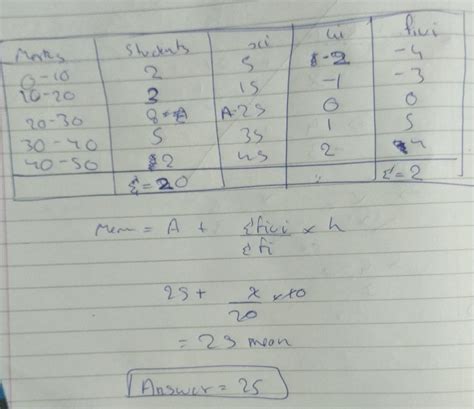 Marks Students xi ui fiui
0-10 2 5 -2 -4
10-20 3 15 -1 -3
20-30 8 A-25 0 0
30-40 5 35 1 5
40-50 2 45 2 4
Σ=20 Σ=2
Mean = A + Σfiui × h
Σfi
25 + 2 ×10
20
= 25 mean
Answer = 25